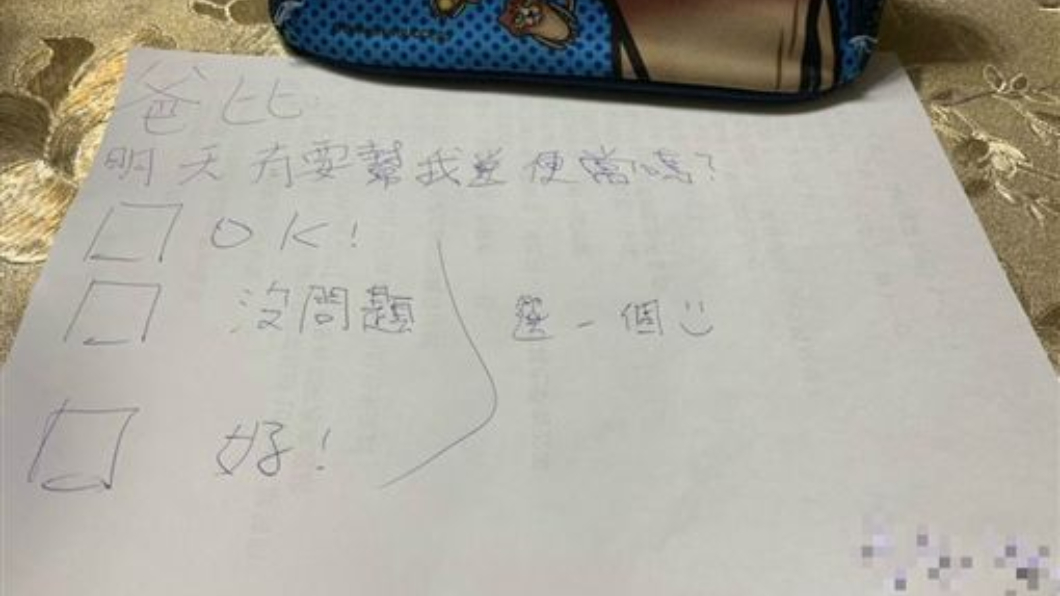 爸比
明天有要幫我送便當嗎?
OK!
沒問題
選一個
好!